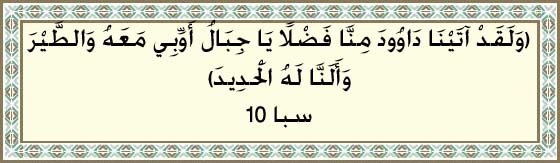 (وَلَقَدْ آتَيْنَا دَاوُودَ مِنَّا فَضْلًا يَا جِبَالُ أَوِّبِي مَعَهُ وَالطَّيْرَ
وَأَلَنَّا لَهُ الْحَدِيدَ)
سبا 10